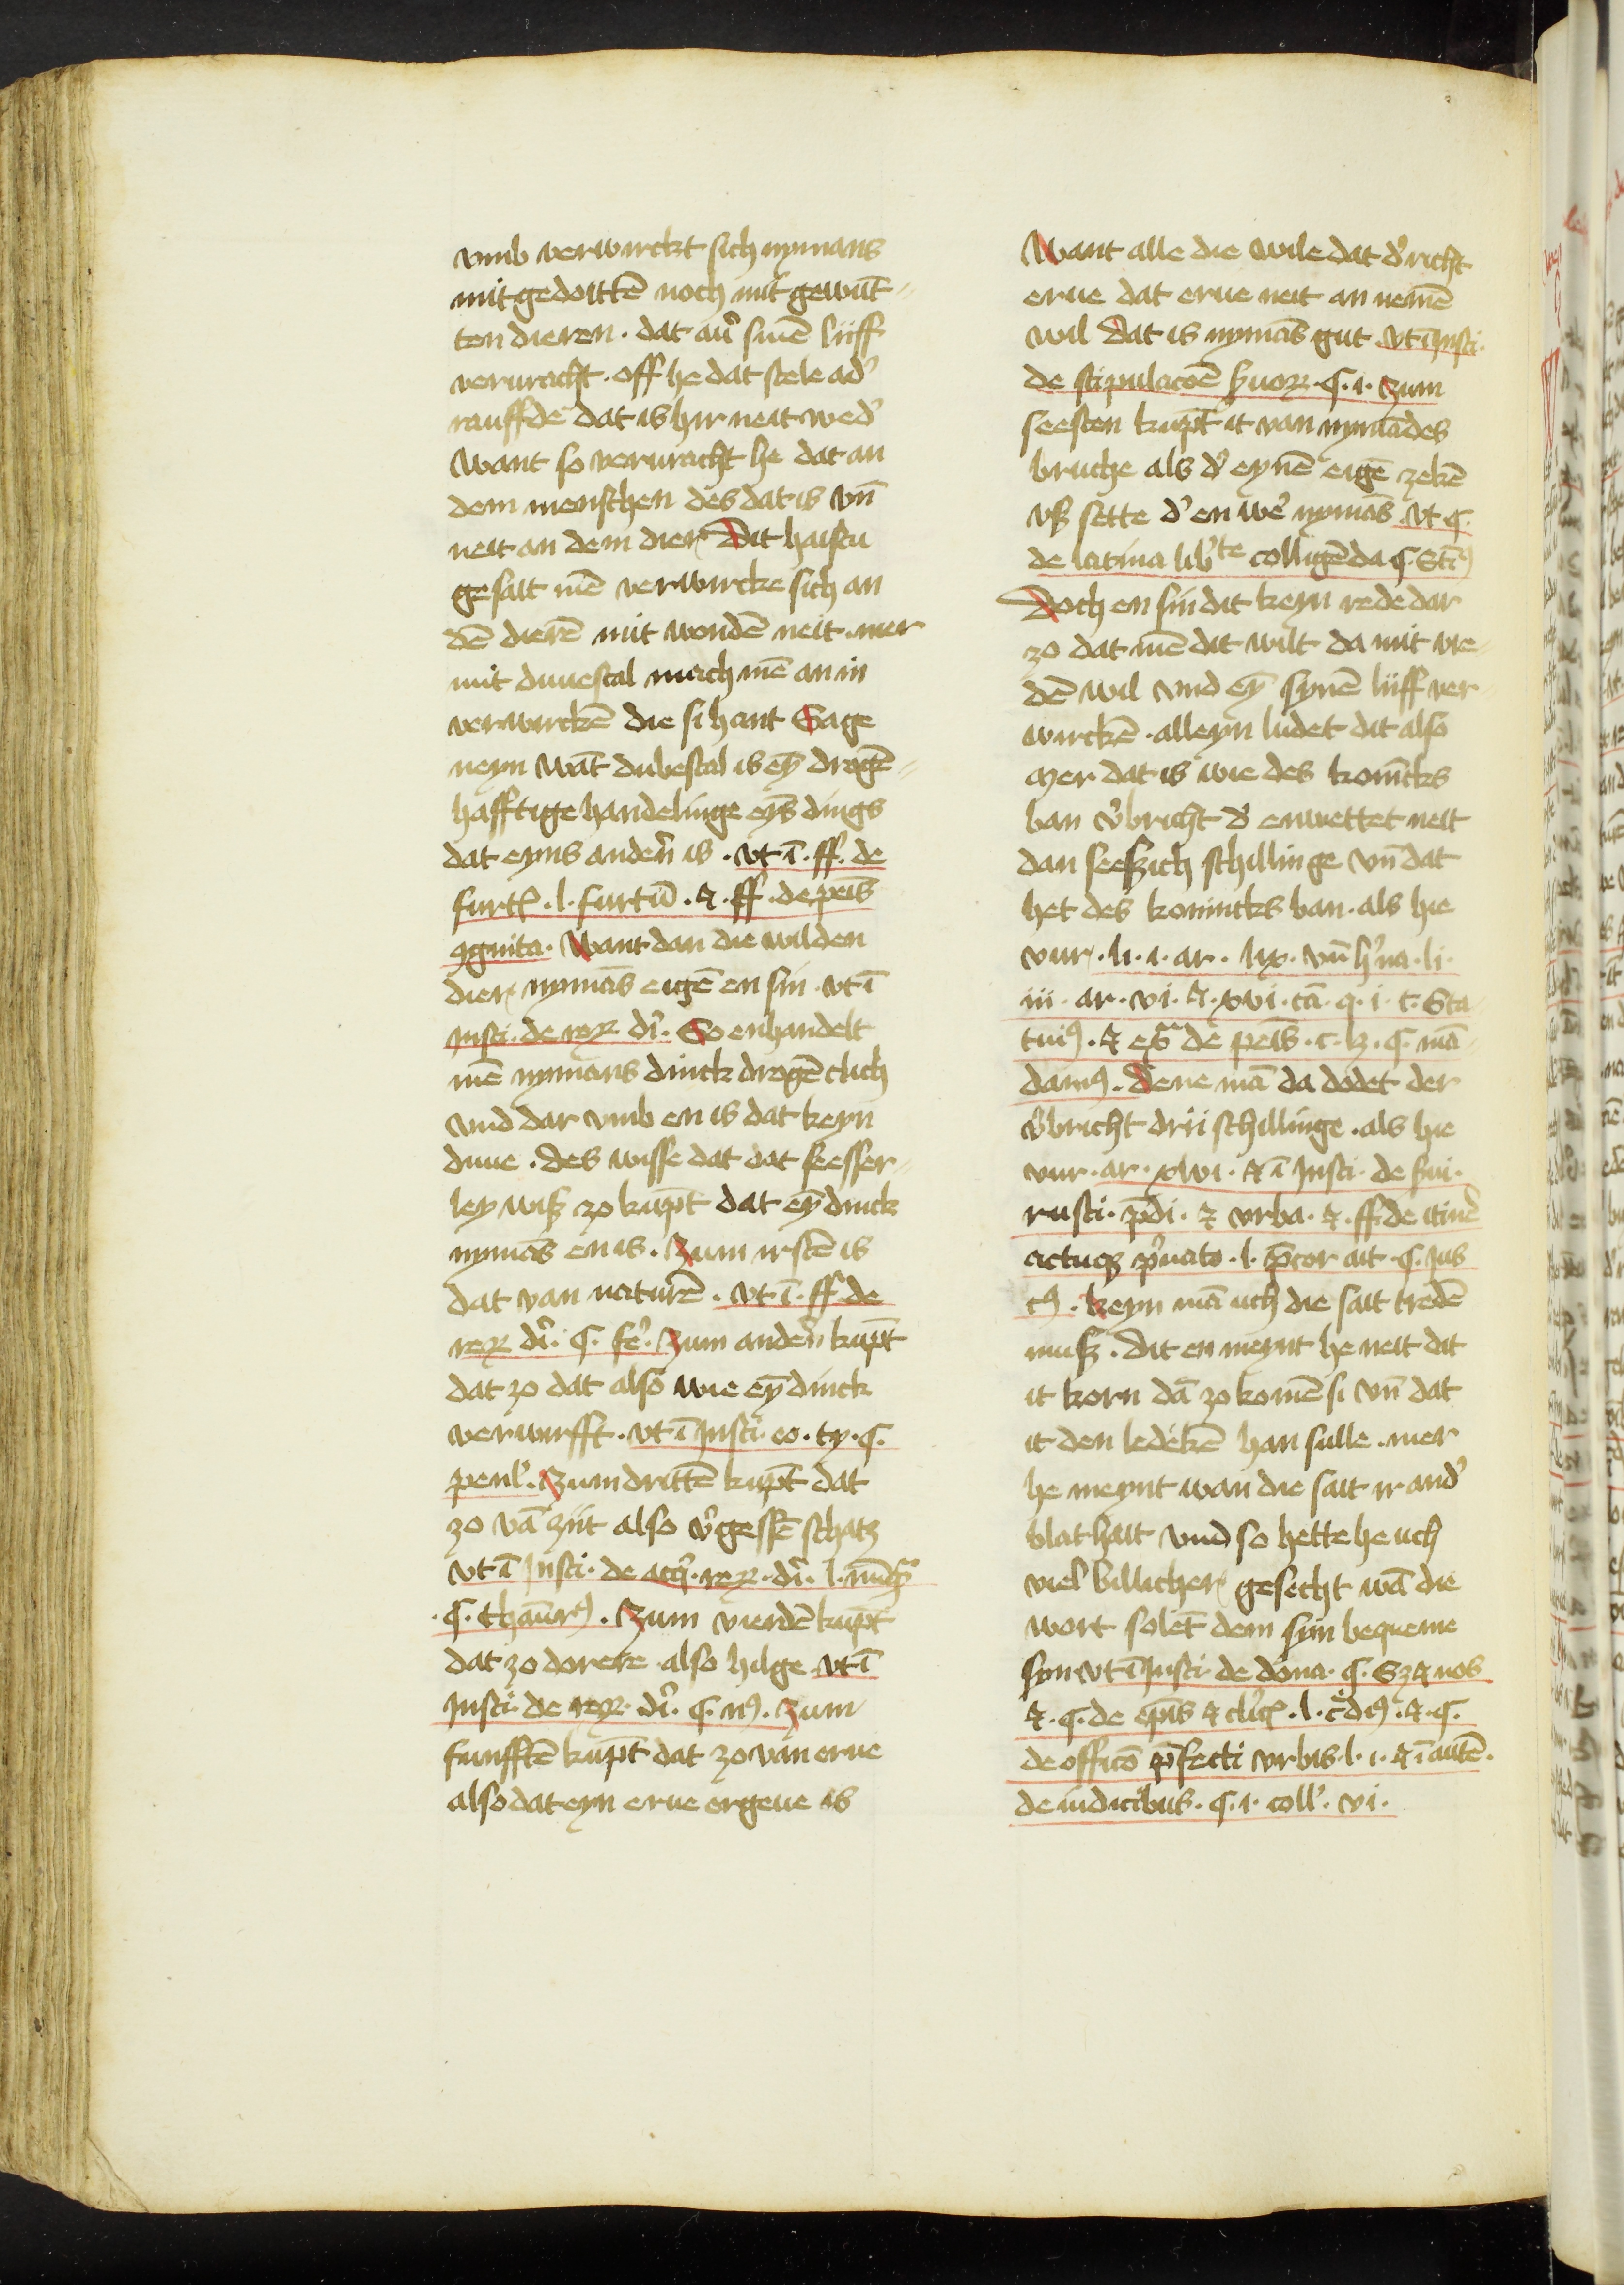 vmb verwirckt sich nymans
mit gedoittē noch mit gewūt
ten dieren . dat auͤ sinē liiff
veruracht . off he dat stele ad'
rauffde dat is hir neit wed'
Want so veruracht he dat an
dem menschen des dat is vn̄
neit an dem dier Dit haistu
gesait mē verwircke sich an
dē dierē mit wondē neit . mer
mit duuestal mach mē an in
verwirckē die si hant Sage
neyn wāt dubestal is ey̅ drogē
hafftige handelinge eyͤs dings
dat eyns anderͤn is . vt ī . ff . de
furtꝭ . l . furtū . ⁊ . ff . de peīs
ꝯgnita . Want dan die wilden
dier nymās eigē en sin . vt ī
insti . de reꝝ di' . So enhandelt
mē nymans dinck drogēclich
vnd dar vmb en is dat keyn
duue . des wisse dat dat seesser
ley wiß zo kūpt dat ey̅ dinck
nymās en is . Zum irstē is
dat van naturē . vt ī . ff . de
reꝝ di' . §. fe' . Zum anderͤn kūpt
dat zo dat also wie ey̅ dinck
verwirfft . vt ī insti . eo . ty . §.
penl' . Zum drittē kūpt dat
zo vā ziit also v'gessē schatz
vt ī insti . de acq' . reꝝ . di' . l . nūqͣ
. §. thaūrꝰ . Zum vierdē kūpt
dat zo dorere also hilge vt ī
insti . de reꝝ . di' . §. nꝰ . Zum
funfftē kūpt dat zo van erue
also dat eyn erue ergeue is
Want alle die wile dat d' richt
erue dat erue neit an nemē
wil Dat is nymās gut . vt ī insti .
de stipulacōē ẜuoꝝ . §. i . Zum
seesten kūpt it van nymādes
bruche als d' eynē eigē zekē
vß sette d' en we' nymās . vt . §.
de latina lib'te colligēda §. Stꝰ
Doch en sin dit keyn rede dar
zo dat mē dit wilt da mit vre
dē wil vnd ey̅ synē liiff ver
wirckē . alleyn ludet dit also
Mer dat is wie des konīcks
ban v'bricht d' enwettet neit
dan seeßich schillinge vn̄ dat
het des konincks ban . als hie
vur . li . i . ar . lix . vn̄ h'na . li .
iii . ar . vi . ⁊ . xvi . cā . q . i . c . Sta
tuiꝰ . ⁊ exͣ de peīs . c . iȝ . §. mā
damꝰ . Dene mā da dodet der
v'bricht drii schillinge . als hie
vur . ar . xlvi . ⁊ ī insti . de ẜui .
rusti . p̄di . ⁊ vrba . ⁊ . ff . de itin'e
actuqꝫ p'uato . l . p̄tor ait . §. ius
tꝰ . Keyn mā uch die sait tredē
muß . dit en meynt he neit dit
it korn dā zo komē si vn̄ dat
it den ledekē han sulle . mer
he meynt wan die sait ir and'
blat hait vnd so hette he uch
viel billicher gesecht wā die
wort soletͤ dem syn bequeme
syn vt ī insti . de dōna . §. Sꝫ ⁊ nos
⁊ . §. de epīs ⁊ cl'icꝭ . l . c̄dꝰ . ⁊ . §.
de officō p̄fecti vrbis . l . i . ⁊ ī autē .
de iudicibus . §. i . coll' . vi .